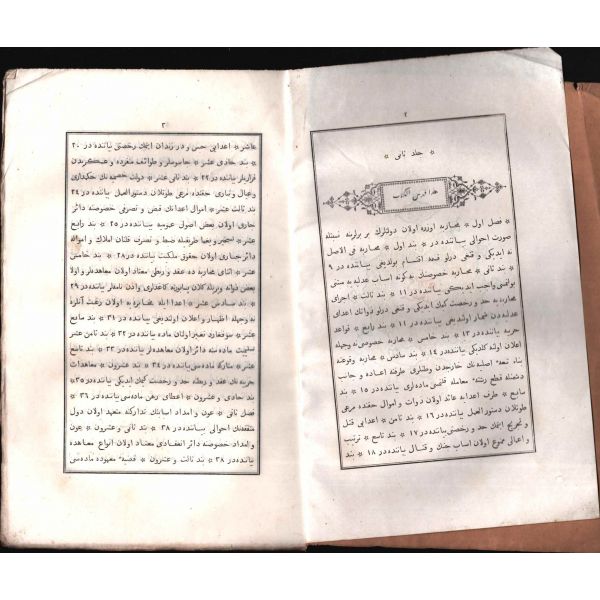 ٢
* جلد ثانی *
هذا فهرس الكتاب
* فصل اول * محاربه اوزره اولان دولتلرك بر برلرينه نسبتله
صورت احوالی بياننده در * بند اول * محاربه فی الاصل
نه ايديكی و قنغی درلو شيئه انقسام بولديغی بياننده در ٩
* بند ثانی * محاربه خصوصنك نه كونه اسباب عدليه يه مبتنی
بولنمی واجب ايديكی بياننده در ١١ * بند ثالث * اجرای
محاربه يه حد و رخصت كيمك ايديكی و قنغی درلو ذواتك اعدای
عدله دن شمار اولنديغی بياننده در ١١ * بند رابع * قواعد
حربيه بياننده در ١٣ بند خامس * محاربه خصوصی نه وجهله
اعلان اولنه كلديكی بياننده در ١٤ * بند سادس * محاربه وقوعنه
بناء تبعهٔ اصليه نك خارجدن وطنلری طرفنه اعاده و جانب
دشمنله قطع رشتهٔ معامله قلنمی مادهلری بياننده در ١٥ بند
سابع * طرف اعدايه عائد اولان ذوات و اموال حقنده مرعی
طوتلان دستور العمل بياننده در ١٦ * بند ثامن * اعدايی قتل
و تجريح ايتمك حد و رخصتی بياننده در ١٧ * بند تاسع * ترتيب
و اعمالی ممنوع اولان اسباب جنك و قتال بياننده در ١٨ * بند
٣
عاشر * اعدايی حبس و در زندان ايتمك رخصتی بياننده در ٢٠
* بند حادی عشر * جاسوسلر و طوائف متفرده و عسكريدن
فراريلر بياننده در ٢٢ بند ثانی عشر * دولت خصميه نك حكمداری
وعيال و تباری حقنده مرعی طوتلان دستور العمل بياننده در ٢٤
بند ثالث عشر * اموال اعدانك قبض و تصرفی خصوصنه دائر
جاری اولان بعض اصول عموميه بياننده در ٢٥ * بند رابع
عشر * تسخير و يغما طريقيله ضبط و تصرف قلنان املاك و امواله
دائر جاری اولان حقوق ملكيت بياننده در ٢٨ * بند خامس
عشر * اثنای محاربه ده عقد و ربطی معتاد اولان معاهدهلر و اولا
بعض ذواته ويريله كلان پاساپورته كاغدلری و اذن نامهلر بياننده در ٢٩
* بند سادس عشر * اعدا ايله مخابره يه اولان رغبت آنلره
نه وجهله اظهار و اعلان اولنديغی بياننده در ٣١ * بند سابع
عشر * سوغغاردی تعبير اولنان ماده بياننده در ٣٢ * بند ثامن عشر
تسليمت ماده سنه دائر اولان معاهدهلر بياننده در ٣٣ * بند تاسع
عشر * متاركه ماده سی بياننده در ٣٤ * بند عشرون * معاهدات
حربيه نك عقد و ربطنه حد و رخصت كيمك ايديكی بياننده در ٣٥
بند حادی و عشرون * اعطای رهن ماده سی بياننده در ٣٦ *
فصل ثانی * عون و امداد اسبابنك تداركنه متعهد اولان دول
متفقه نك احوالی بياننده در ٣٨ * بند ثانی و عشرون * عون
و امداد خصوصنه دائر انعقادی معتاد اولان انواع معاهده
بياننده در ٣٨ * بند ثالث و عشرون * قضيهٔ معهوده ماده سی